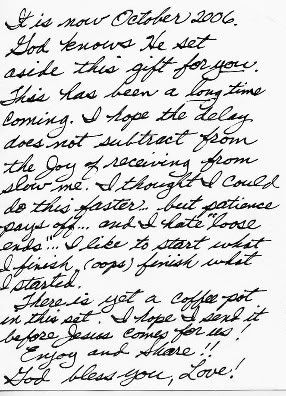 It is now October 2006.
God knows He set
aside this gift for you.
This has been a long time
coming. I hope the delay
does not subtract from
the Joy of receiving from
slow me. I thought I could
do this faster.. but patience
pays off... and I hate "loose
ends"... I like to start what
I finish, (oops) finish what
I started.
There is yet a coffee pot
in this set. I hope I send it
before Jesus comes for us!
Enjoy and share!!
God bless you, Love!